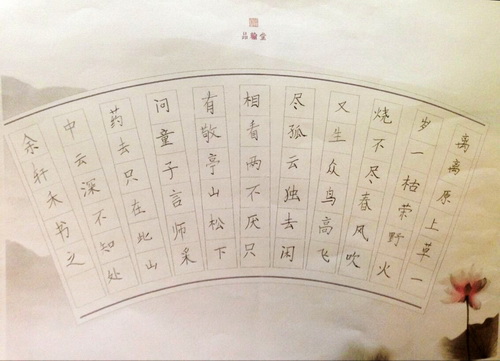 品翰堂
离离原上草一
岁一枯荣野火
烧不尽春风吹
又生众鸟高飞
尽孤云独去闲
相看两不厌只
有敬亭山松下
问童子言师采
药去只在此山
中云深不知处
余轩禾书之